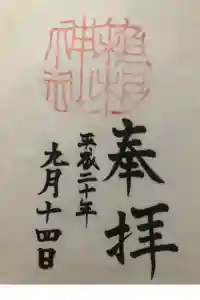 奉拝
平成二十年
九月十四日